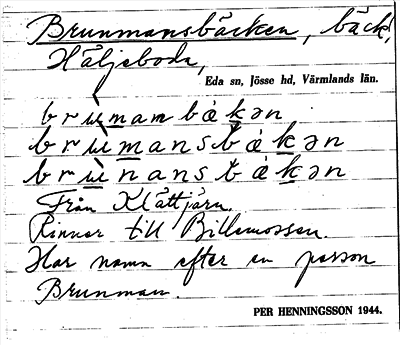 Brunmansbäcken, bäck,
Häljeboda,
Eda sn, Jösse hd, Värmlands län.
brùmambák̲ən
brùm̲ansbák̲ən
brùnansbák̲ən
Från Klättjärn.
Rinner till Billamossen.
Har namn efter en person
Brunman.
PER HENNINGSSON 1944.